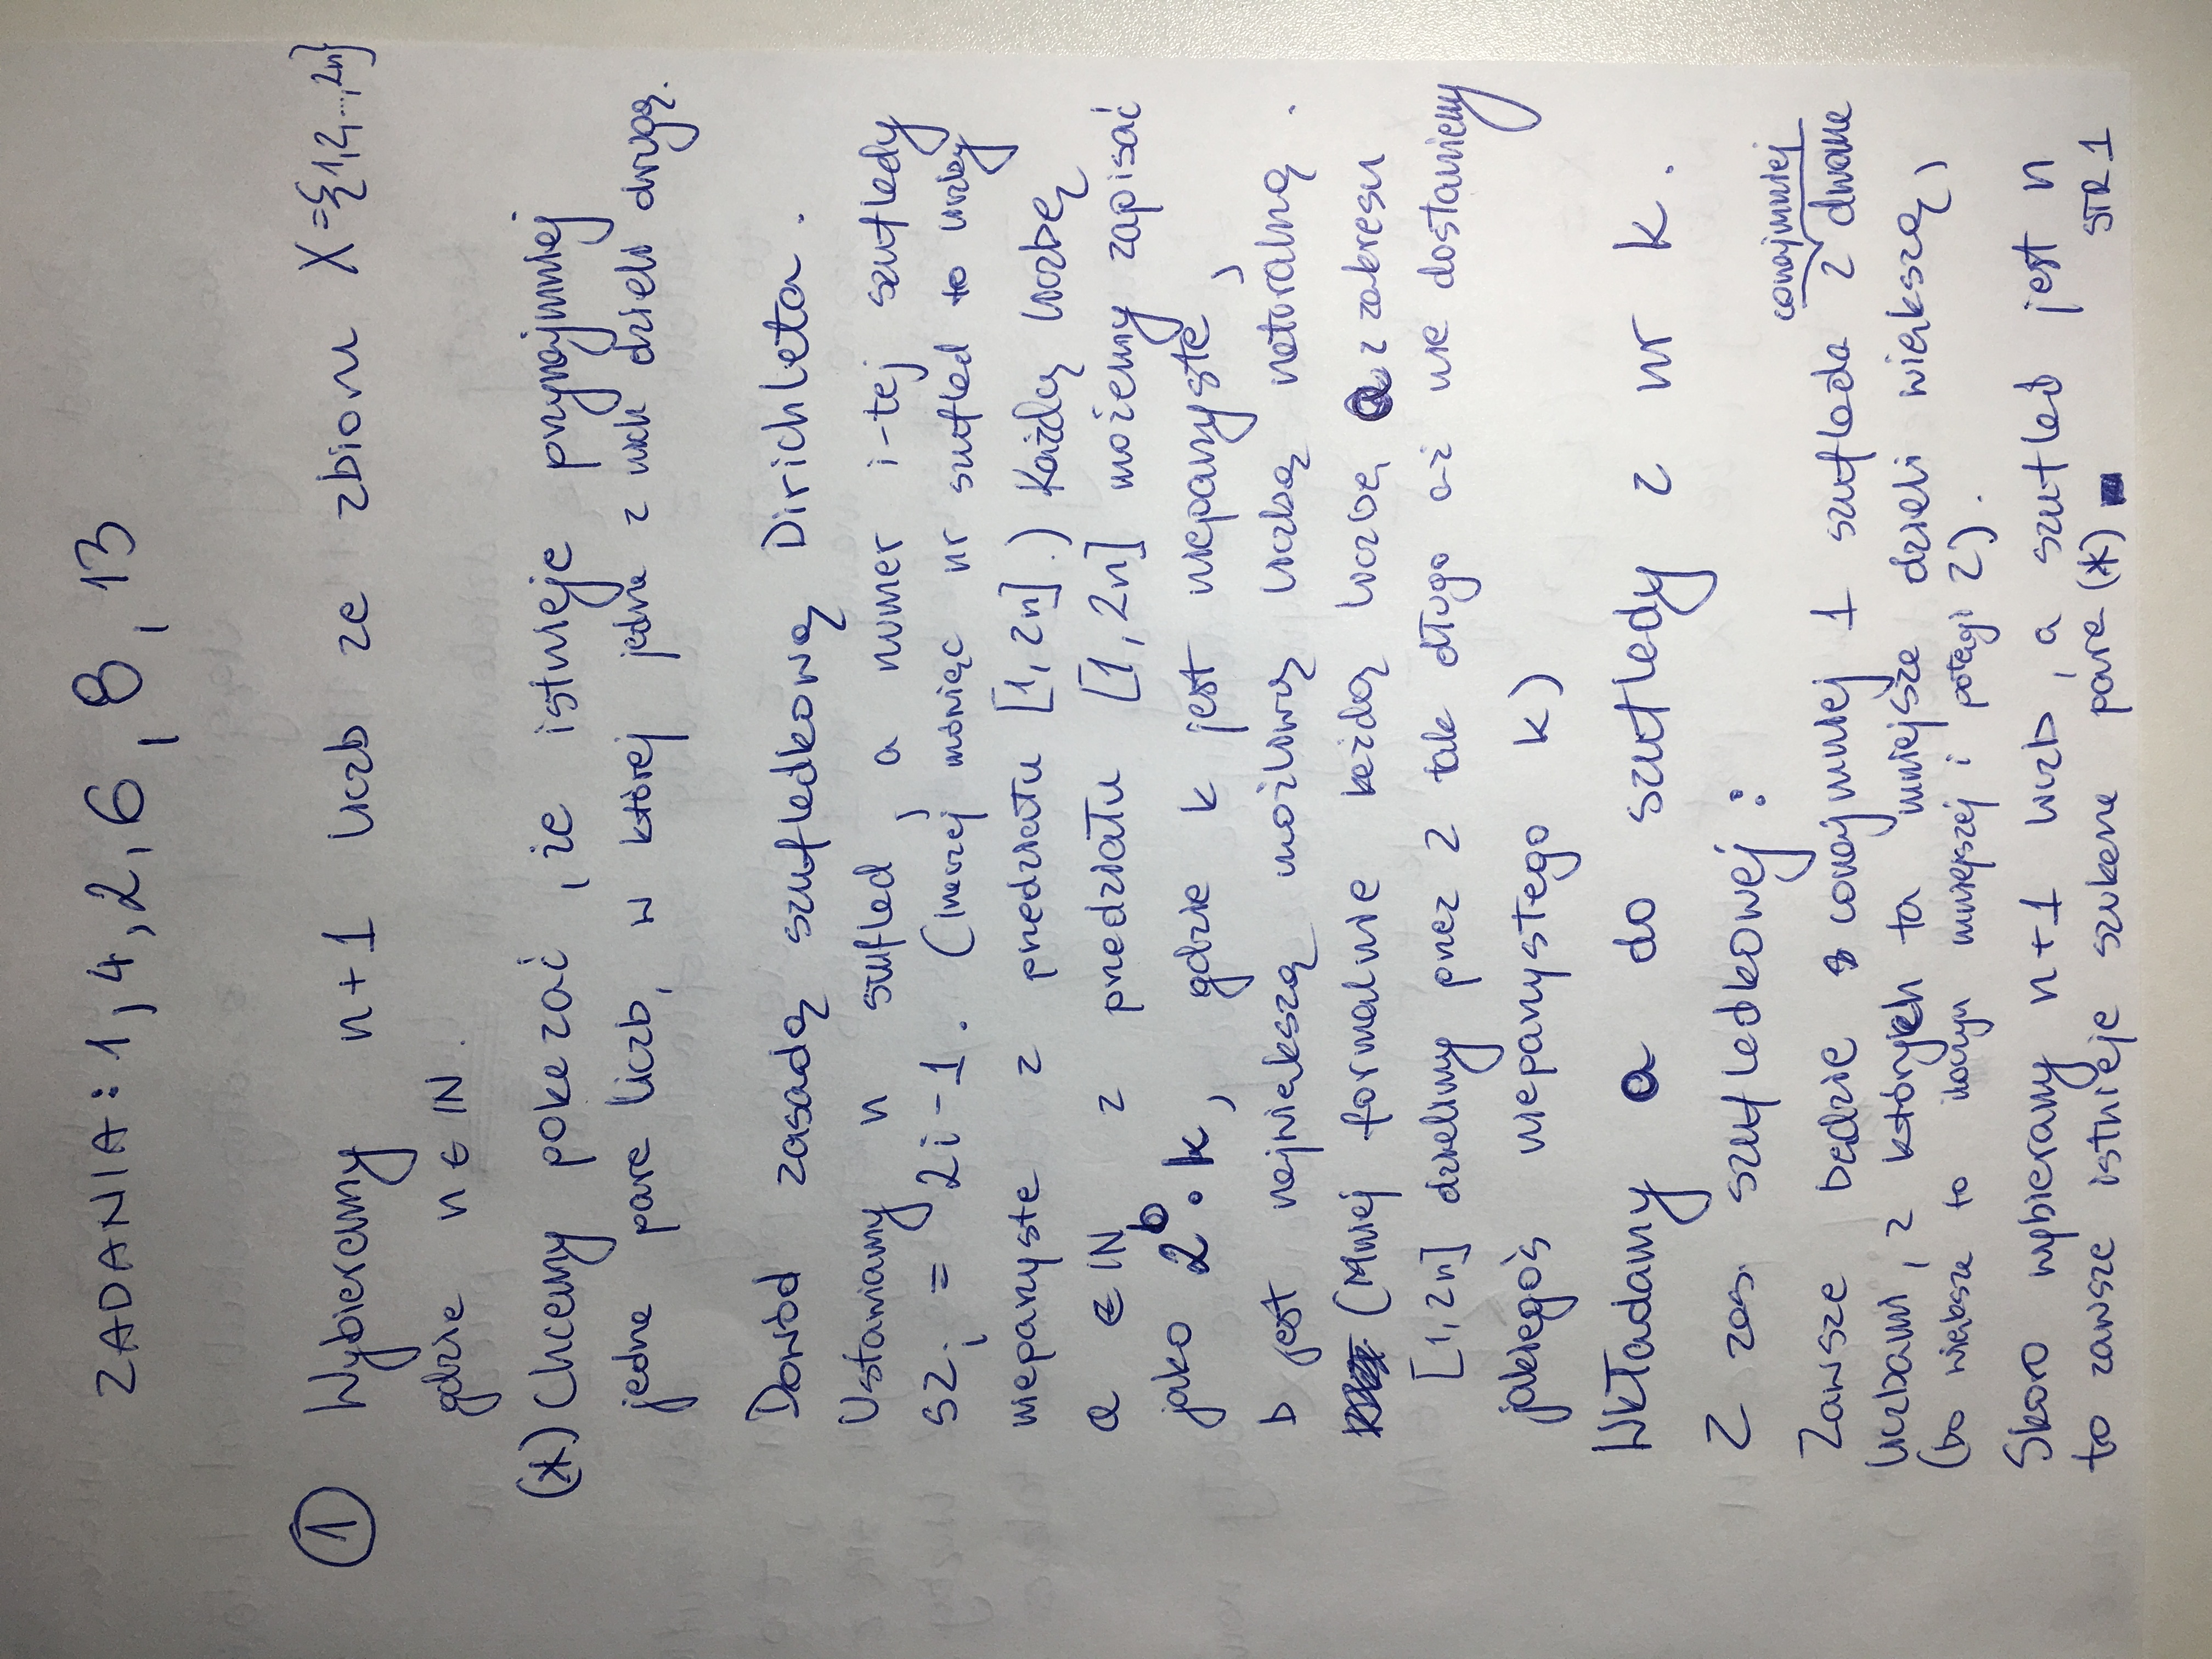 ZADANIA: 1, 4, 2, 6, 8, 13
① Wybieramy n+1 liczb ze zbioru X={1,2,...,2n}
gdzie n ∈ IN.
(*) Chcemy pokazać, że istnieje przynajmniej
jedna para liczb, w której jedna z nich dzieli drugą.
Dowód zasadą szufladkową Dirichleta.
Ustawiamy n szuflad, a numer i-tej szuflady
sz_i = 2i-1. (Inaczej mówiąc nr szuflad to liczby
nieparzyste z przedziału [1,2n].) Każdą liczbę
a ∈ IN z przedziału [1,2n] możemy zapisać
jako 2^b · k, gdzie k jest nieparzyste,
b jest największą możliwą liczbą naturalną.
(Mniej formalnie każdą liczbę a z zakresu
[1,2n] dzielimy przez 2 tak długo aż nie dostaniemy
jakiegoś nieparzystego k)
Wkładamy a do szuflady z nr k.
Z zas. szufladkowej:
conajmniej
Zawsze będzie conajmniej 1 szuflada z dwoma
liczbami, z których ta mniejsza dzieli większą,
(bo większa to iloczyn mniejszej i potęgi 2).
Skoro wybieramy n+1 liczb, a szuflad jest n
to zawsze istnieje szukana para (*) ■
STR 1